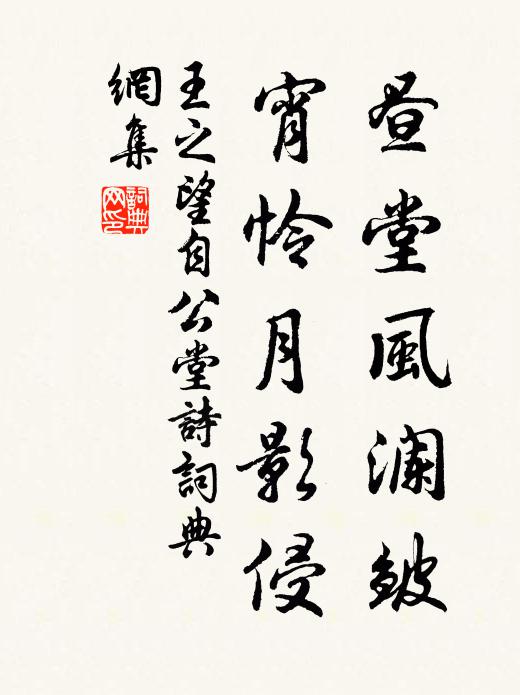 昼堂風瀾皺
宵怜月影侵
王之望自公堂詩詞典
網集
詞典
网印